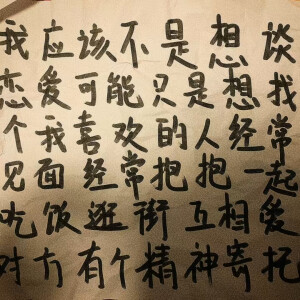 我应该不是想谈
恋爱可能只是想找
个我喜欢的人经常
见面经常抱抱一起
吃饭逛街互相爱
对方有个精神寄托